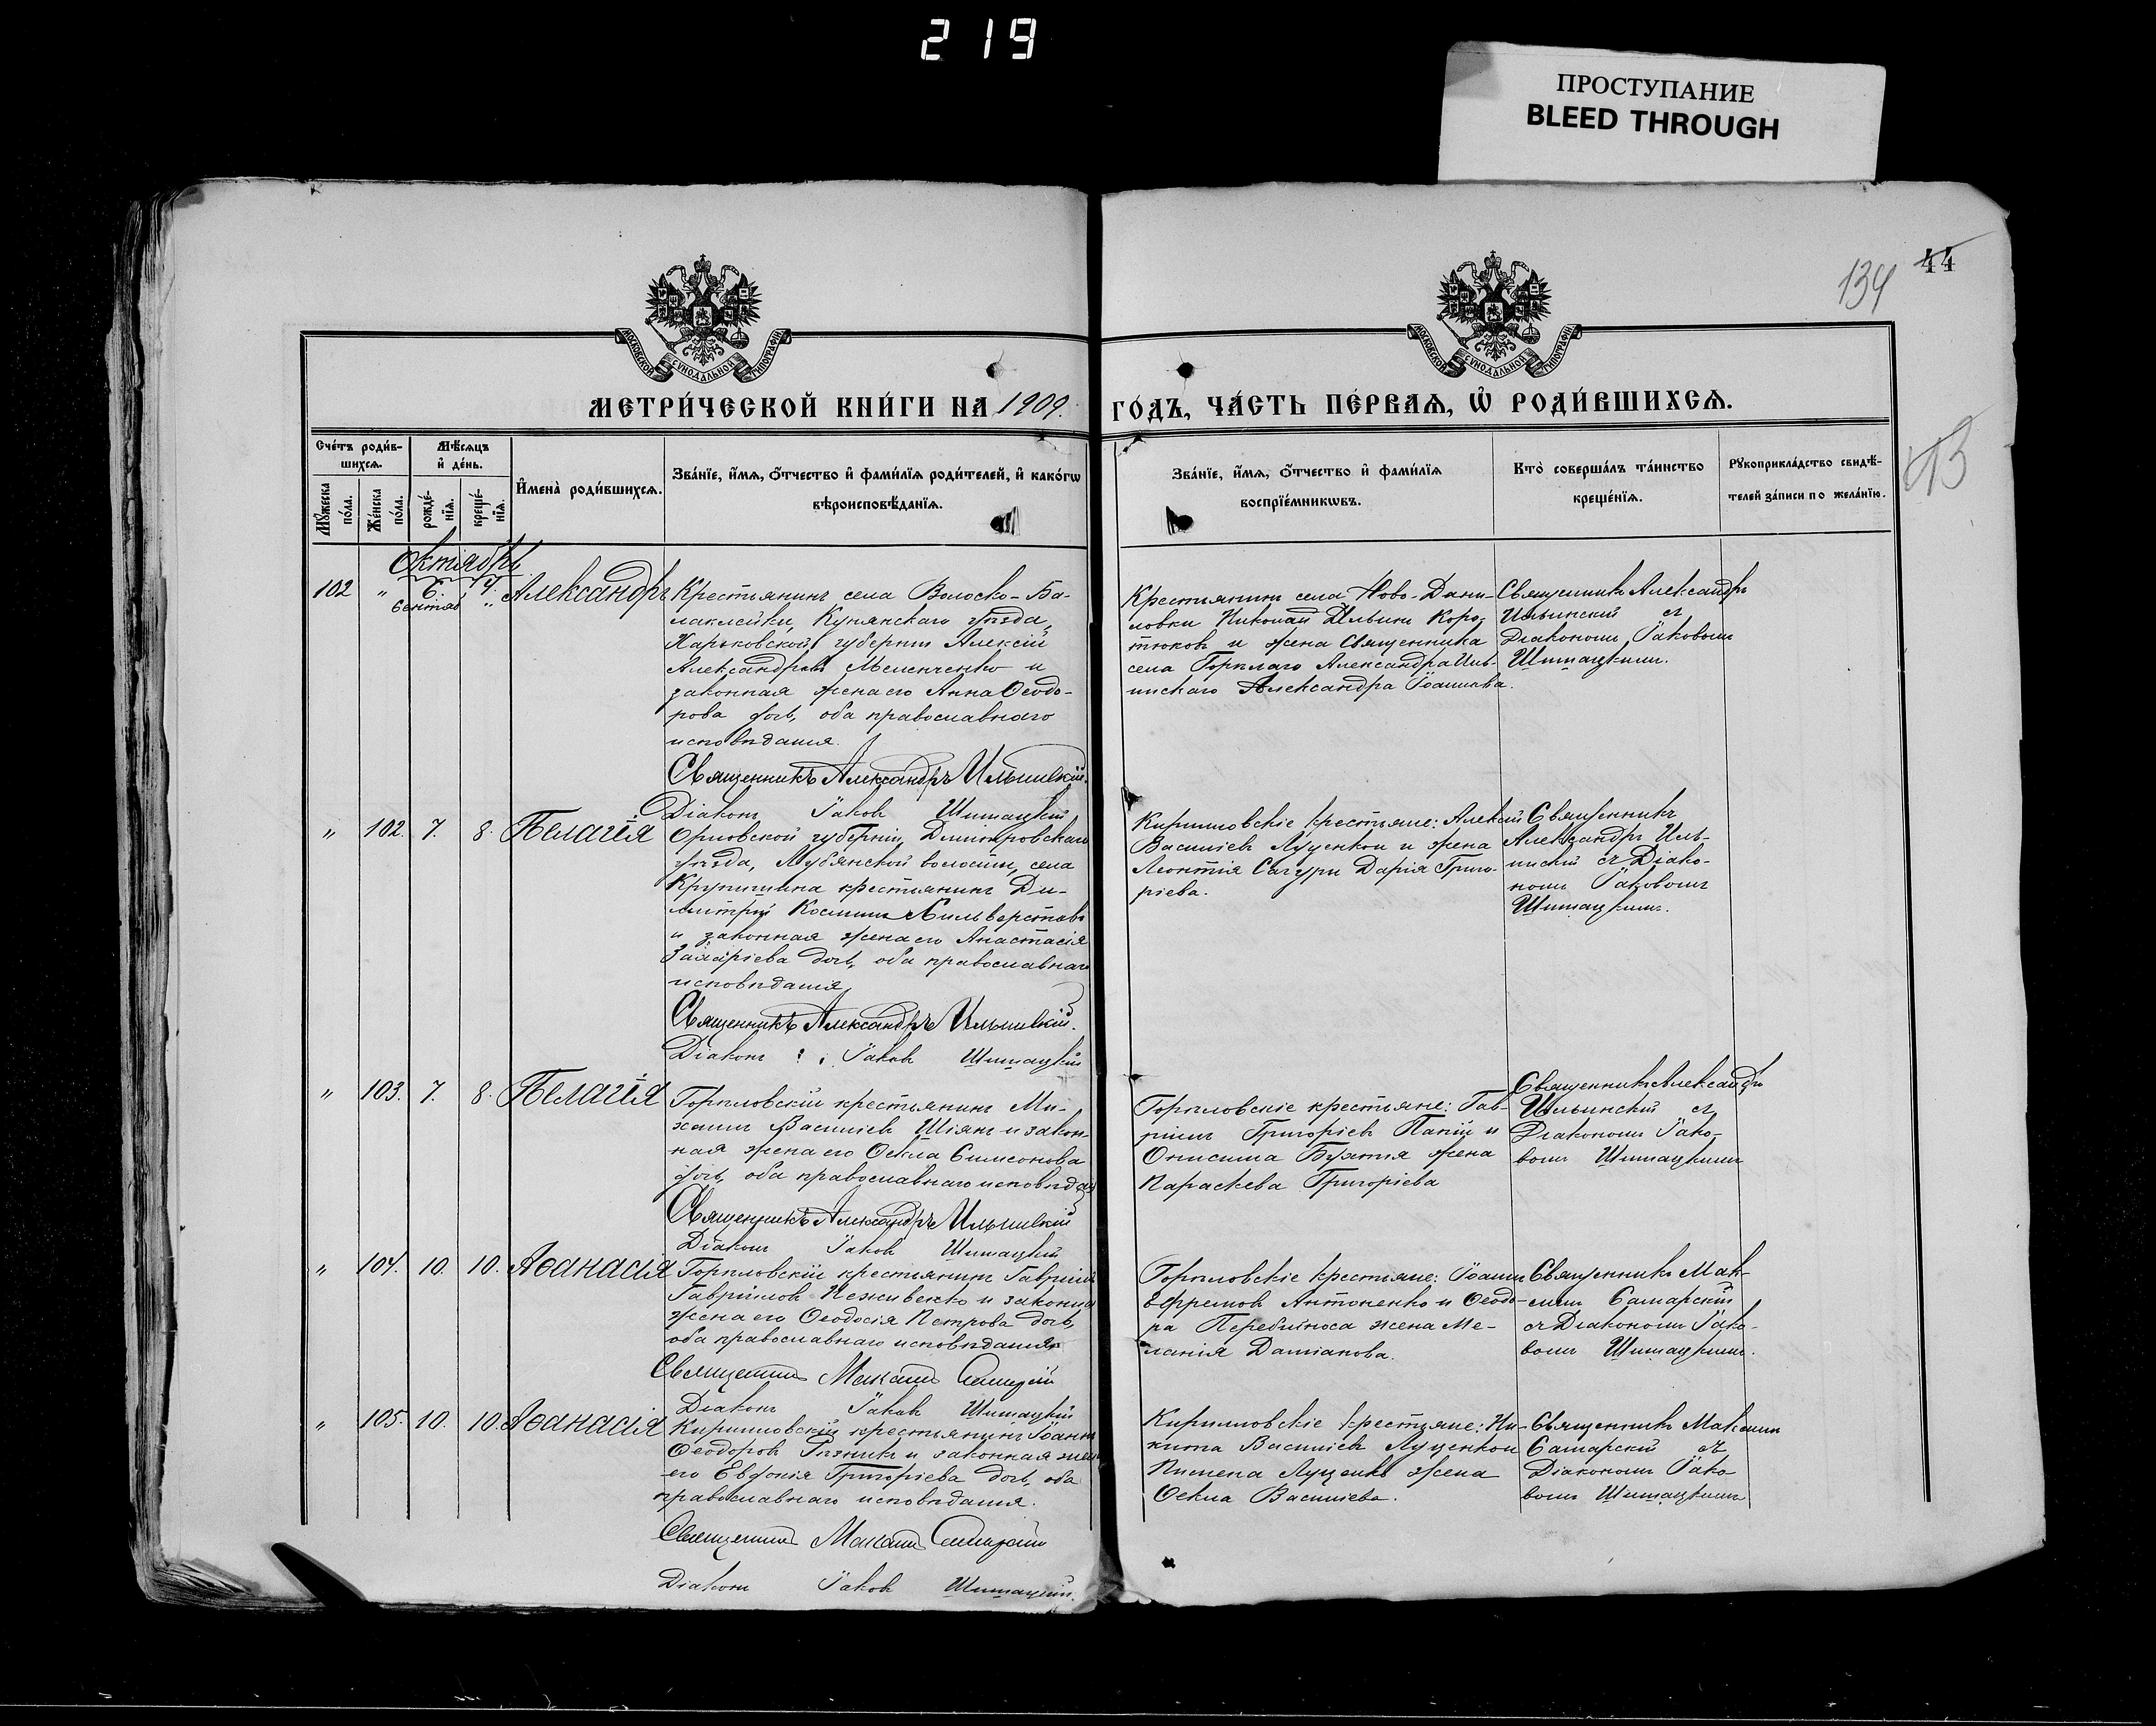 219
ПРОСТУПАНИЕ
BLEED THROUGH
134 44
МОСКОВСКОЙ СѴНОДАЛЬНОЙ ТИПОГРАФІИ
МОСКОВСКОЙ СѴНОДАЛЬНОЙ ТИПОГРАФІИ
МЕТРИ́ЧЕСКОЙ КНИ́ГИ НА 1909.
ГО́ДЪ, ЧА́СТЬ ПЕ́РВАѦ, Ѡ҆ РОДИ́ВШИХСѦ.
Сче́тъ роди́в-
шихсѧ.
Мѣ́сѧцъ
и҆ де́нь.
Мꙋ́жеска по́ла.
Же́нска по́ла.
рожде́-
нїѧ.
креще́-
нїѧ.
И҆мена̀ роди́вшихсѧ.
Зва́нїе, и҆́мѧ, ѻ҆́тчество и҆ фами́лїѧ роди́телей, и҆ како́гѡ
вѣроисповѣ́данїѧ.
Зва́нїе, и҆́мѧ, ѻ҆́тчество и҆ фами́лїѧ
воспрїе́мникѡвъ.
Кто̀ соверша́лъ та́инство
креще́нїѧ.
Рꙋкоприкла́дство свидѣ́-
телей за́писи по жела́нїю.
Октябрь
102 " 6. 4. Александръ
Сентяб "
Крестьянинъ села Волоско-Ба-
лаклейки, Купянскаго уѣзда,
Харьковской губерніи Алексій
Александровъ Меленченко и
законная жена его Анна Ѳеодо-
рова дочь, оба православнаго
исповѣданія.
Священникъ Александръ Ильинскій.
Діаконъ Іаковъ Шишацкій
Крестьянинъ села Ново-Дани-
ловки Николай Ильинъ Коро-
тюковъ и жена Священника
села Горѣлаго Александра Иль-
инскаго Александра Іоаннова.
Священникъ Александръ
Ильинскій съ
Діакономъ Іаковомъ
Шишацкимъ.
" 102. 7. 8. Пелагія
Орловской губерніи, Дмитровскаго
уѣзда, волости, села
Крупишина крестьянинъ Ди-
митрій Косминъ Сильверстовъ
и законная жена его Анастасія
дочь, оба православнаго
исповѣданія,
Священникъ Александръ Ильинскій.
Діаконъ Іаковъ Шишацкій
Кирилловскіе крестьяне: Алексій
Васильевъ Луценков и жена
Леонтія Сагури Дарія Григо-
ріева.
Священникъ
Александръ Иль-
инскій съ Діако-
номъ Іаковомъ
Шишацкимъ.
" 103. 7. 8. Пелагія
Горѣловскій крестьянинъ Ми-
хаилъ Васильевъ Шіянъ и закон-
ная жена его Ѳекла Симеонова
дочь, оба православнаго исповѣдан
Священникъ Александръ Ильинскій
Діаконъ Іаковъ Шишацкій
Горѣловскіе крестьяне: Гав-
ріилъ Григоріевъ Папій и
Онисима жена
Параскева Григоріева
Священникъ Александръ
Ильинскій съ
Діакономъ Іако-
вомъ Шишацкимъ
" 104. 10. 10. Аѳанасія
Горѣловскій крестьянинъ Гавріилъ
Гавріиловъ Неживенко и законная
жена его Ѳеодосія Петрова дочь,
оба православнаго исповѣданія
Священникъ Максимъ Самарскій
Діаконъ Іаковъ Шишацкій
Горѣловскіе крестьяне: Іоаннъ
Ефремовъ Антоненко и Ѳеодо-
ра Перебійноса жена Ме-
ланія Даміанова.
Священникъ Мак-
симъ Самарскій
съ Діакономъ Іако-
вомъ Шишацкимъ.
" 105. 10. 10. Аѳанасія
Кирилловскій крестьянинъ Іоаннъ
Ѳеодоровъ Рѣзникъ и законная жена
его Евфонія Григоріева дочь, оба
православнаго исповѣданія.
Священникъ Максимъ Самарскій
Діаконъ Іаковъ Шишацкій.
Кирилловскіе крестьяне: Ни-
кита Васильевъ Луценков
Пимена Луценко жена
Ѳекла Васильева.
Священникъ Максимъ
Самарскій съ
Діакономъ Іако-
вомъ Шишацкимъ